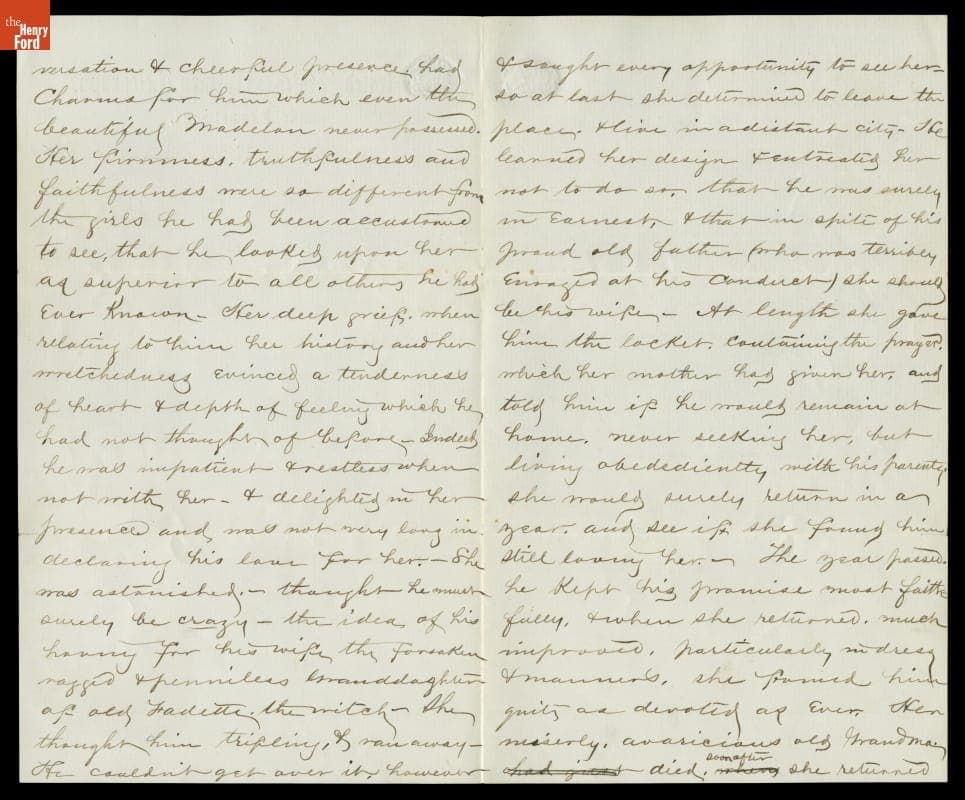 the
Henry
Ford
versation & cheerful presence, had
Charms for him which even the
beautiful Madelon never possessed.
Her firmness, truthfulness and
faithfulness were so different from
the girls he had been accustomed
to see, that he looked upon her
as superior to all others he had
Ever Known - Her deep grief, when
relating to him her history and her
wretchedness evinced a tenderness
of heart & depth of feeling which he
had not thought of before - Indeed
he was impatient & restless when
not with her - & delighted in her
presence and was not very long in
declaring his love for her. - She
was astonished. - thought he must
surely be crazy - the idea of his
having for his wife the forsaken
ragged & penniless Granddaughter
of old Fadette, the witch - She
thought him trifling, & ran away -
He couldn't get over it, however
& sought every opportunity to see her -
so at last she determined to leave the
place, & live in a distant city - He
learned her design & entreated her
not to do so, that he was surely
in Earnest, & that in spite of his
proud old father (who was terribly
Enraged at his Conduct) she should
be his wife - At length she gave
him the locket, containing the prayer,
which her mother had given her, and
told him if he would remain at
home, never seeking her, but
living obediently with his parents,
she would surely return in a
year, and see if she found him
still loving her. - The year passed,
he Kept his promise most faith-
fully, & when she returned, much
improved, particularly in dress
& manners, she found him
quite as devoted as Ever. Her
miserly, avaricious old Grandma
had just died, soon after when she returned